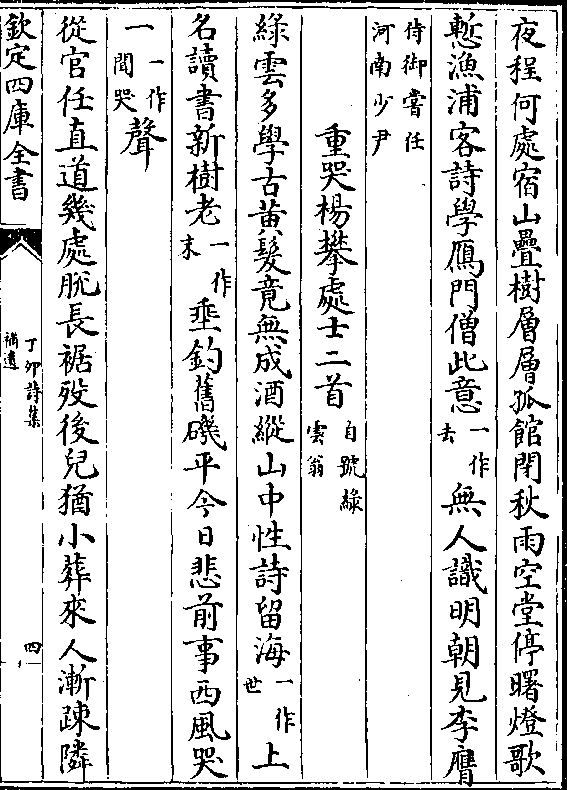 夜程何處宿山疊樹層層孤館閉秋雨空堂停曙燈歌
慙漁浦客詩學鴈門僧此意一作去無人識明朝見李膺
侍御嘗任河南少尹
重哭楊攀處士二首自號綠雲翁
綠雲多學古黃髮竟無成酒縱山中性詩留海一作世上
名讀書新樹老一作末垂釣舊磯平今日悲前事西風哭
一一作聞哭聲
從官任直道幾處脫長裾歿後兒猶小葬來人漸疎隣
欽定四庫全書
丁卯詩集補遺
四